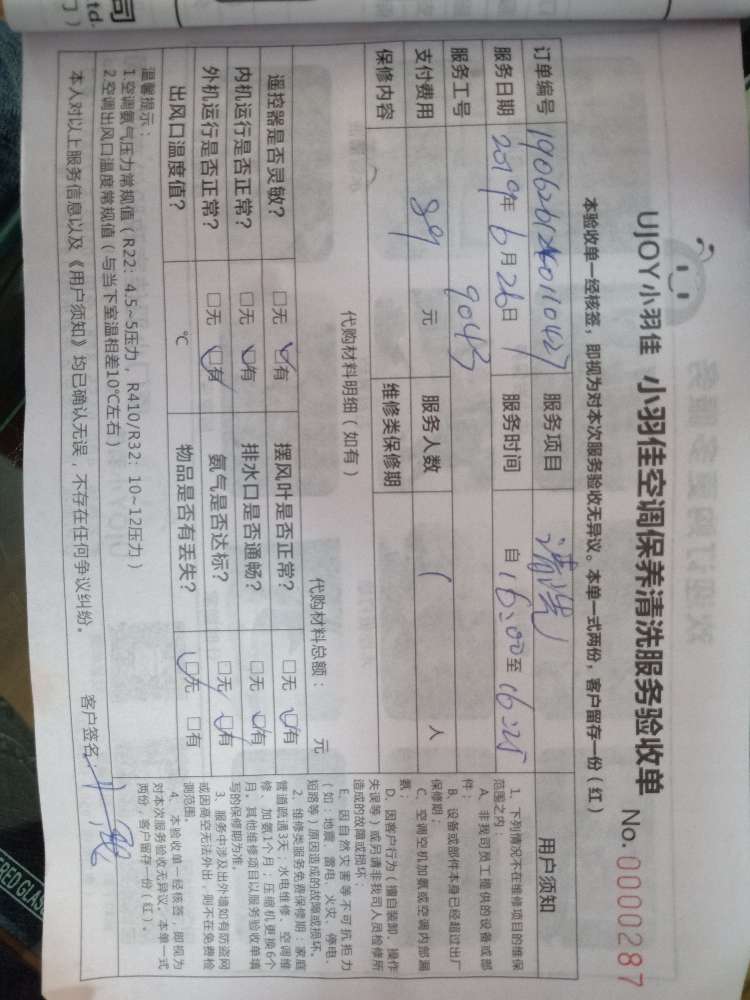 UJOY小羽佳 小羽佳空调保养清洗服务验收单 No. 0000287
本验收单一经核签，即视为对本次服务验收无异议。本单一式两份，客户留存一份（红）
订单编号 服务项目 清洗
服务日期 2019年6月26日 服务时间 自16:00至16:25
服务工号 9043
支付费用 89 元 服务人数 1 人
保修内容 维修类保修期
代购材料明细（如有） 代购材料总额： 元
遥控器是否灵敏？ □无 □有 摆风叶是否正常？ □无 □有
内机运行是否正常？ □无 □有 排水口是否通畅？ □无 □有
外机运行是否正常？ □无 □有 氨气是否达标？ □无 □有
出风口温度值？ ℃ 物品是否有丢失？ □无 □有
温馨提示：
1.空调氨气压力常规值（R22：4.5~5压力，R410/R32：10~12压力）
2.空调出风口温度常规值（与当下室温相差10℃左右）
本人对以上服务信息以及《用户须知》均已确认无误，不存在任何争议纠纷。 客户签名：
用户须知
1、下列情况不在维修项目的维保
范围之内：
A、非我司员工提供的设备或部
件；
B、设备或部件本身已经超过出厂
保修期；
C、空调空机加氨或空调内部漏
氨；
D、因客户行为（擅自装卸、操作
失误等）或另请非我司人员检修所
造成的故障或损坏；
E、因自然灾害等不可抗拒力
（如：地震、雷电、火灾、停电、
短路等）原因造成的故障或损坏。
2、维修类服务免费保修期：家庭
管道疏通3天；水电维修、空调维
修、加氨1个月；压缩机更换6个
月。其他维修项目以服务验收单填
写的保修期为准。
3、服务中涉及出外墙如有防盗网
或因高空无法外出，则不在免费检
测范围。
4、本验收单一经核签，即视为
对本次服务验收无异议。本单一式
两份，客户留存一份（红）。
司
td.
RED GLAS